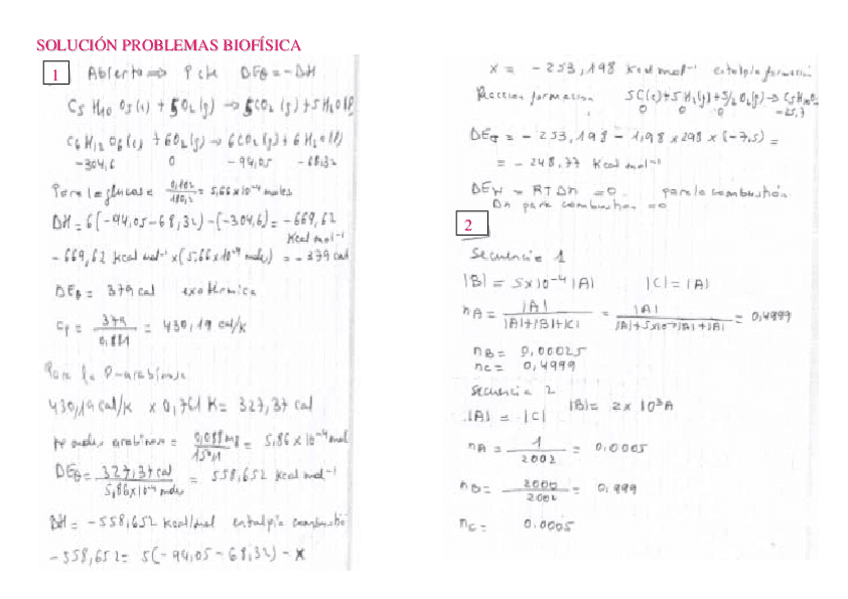 SOLUCIÓN PROBLEMAS BIOFÍSICA
1
Abierto ⇒ P cte DEθ = -DH
C5 H10 O5(s) + 5O2(g) → 5CO2(g) + 5H2O(l)
C6 H12 O6(s) + 6O2(g) → 6CO2(g) + 6H2O(l)
-304,6 0 -94,05 -68,32
Para la glucosa 0,102/180,2 = 5,66x10⁻⁴ moles
DH = 6(-94,05-68,32)-(-304,6) = -669,62
Kcal mol⁻¹
-669,62 kcal mol⁻¹ x (5,66x10⁻⁴ moles) = -379 cal
DEθ = 379 cal exotérmica
= 430,19 cal/K
Para la D-arabinosa
430,19 cal/K x 0,761 K = 327,37 cal
nº moles arabinosa = = 5,86 x 10⁻⁴ mol
DEθ = 327,37 cal/5,86x10⁻⁴ moles = 558,652 kcal mol⁻¹
DH = -558,652 kcal/mol entalpía combustió
-558,652 = 5(-94,05-68,32) - x
x = -253,198 kcal mol⁻¹ entalpía formación
Reacción formación 5C(s)+5H2(g)+5/2 O2(g) → C5H10O5
0 0 0
DEθ = -253,198 - 1,98 x 298 x (-7,5) =
= -248,77 kcal mol⁻¹
DEW = RTDn = 0 para la combustión
Dn para combustion = 0
2
Secuencia 1
|B| = 5x10⁻⁴ |A| |C| = |A|
nA = |A|/|A|+|B|+|C| = |A|/|A|+5x10⁻⁴|A|+|A| = 0,4999
nB = 0,00025
nC = 0,4999
Secuencia 2
|A| = |C| |B| = 2x 10³A
nA = 1/2002 = 0,0005
nB = 2000/2002 = 0,999
nC = 0.0005